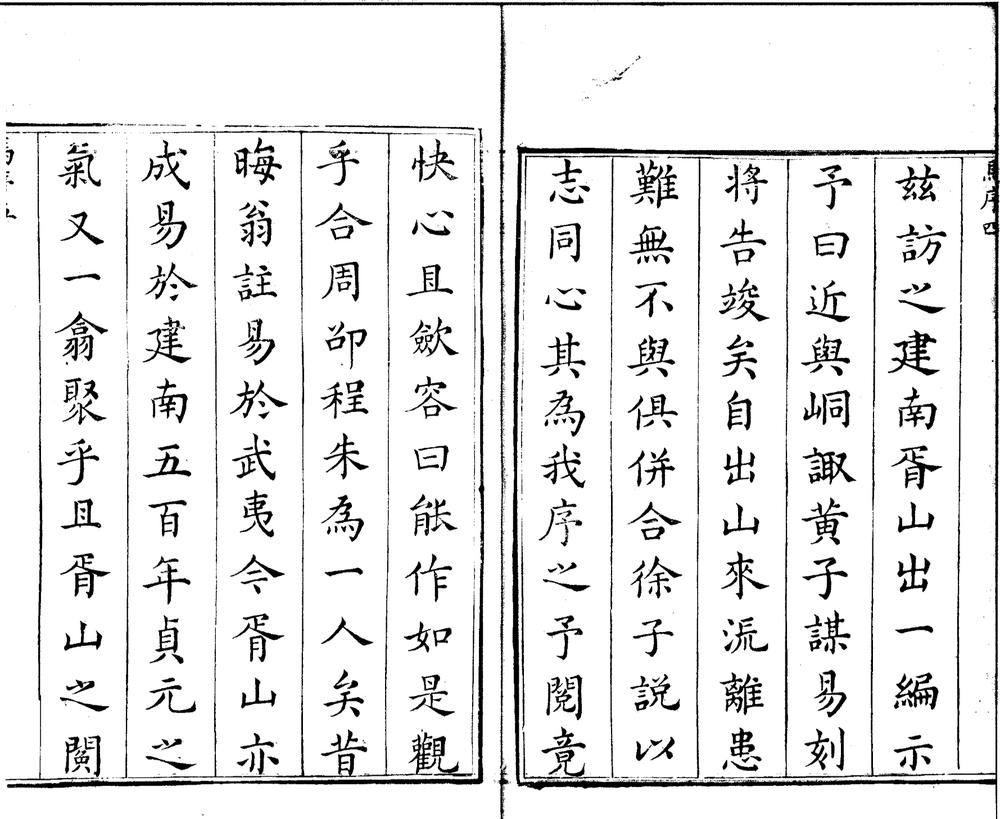 馬序四
茲訪之建南胥山出一編示
予曰近與峒諏黃子謀易刻
將告竣矣自出山來流離患
難無不與俱併合徐子説以
志同心其為我序之予閱竟
快心且歛容曰能作如是觀
乎合周邵程朱為一人矣昔
晦翁註易於武夷今胥山亦
成易於建南五百年貞元之
氣又一翕聚乎且胥山之闃